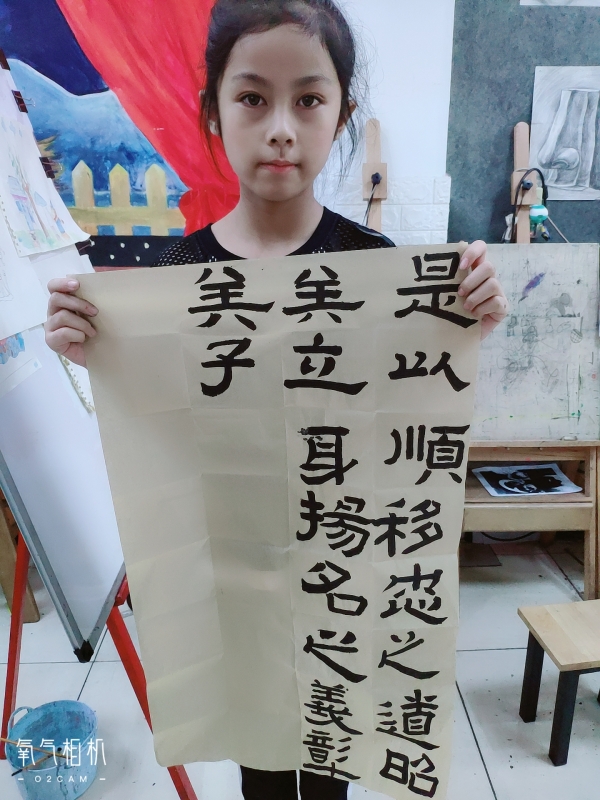 是以順移忠之道昭
矣立身揚名之義彰
矣子
氧气相机
— O2CAM —